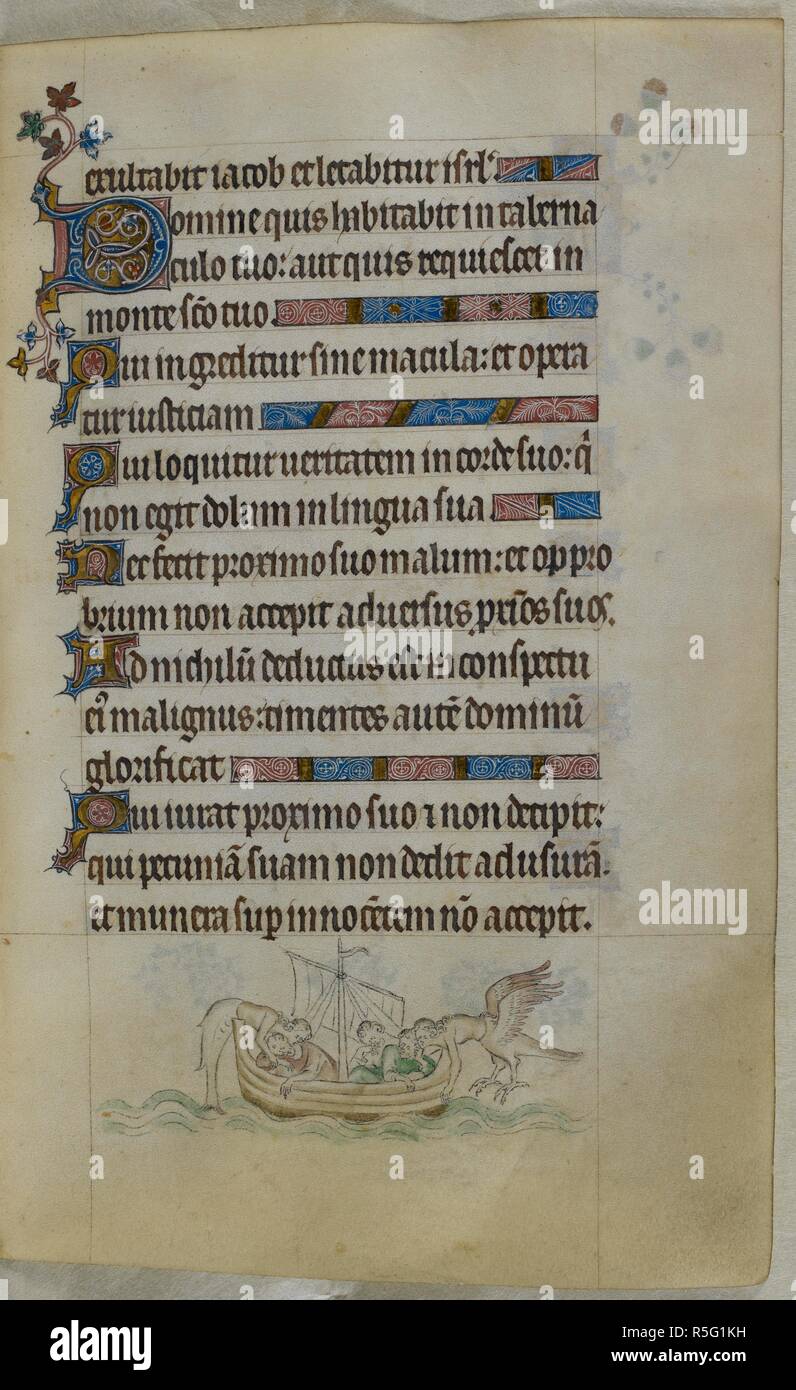 exultabit iacob et letabitur isrl'.
Domine quis habitabit in taberna
culo tuo: aut quis requiescet in
monte sc̄o tuo.
Qui ingreditur sine macula: et opera
tur iusticiam
Qui loquitur ueritatem in corde suo: q̇
non egit dolum in lingua sua
Nec fecit proximo suo malum: et oppro
brium non accepit aduersus prox̄os suos.
Ad nichilū deductus est in conspectu
ei' malignus: timentes autē dominū
glorificat
Qui iurat proximo suo ⁊ non decipit:
qui pecuniā suam non dedit ad usurā.
et munera sup innocētem nō accepit.
alamy stock photo
a alamy
alamy
Image ID: R5G1KH
www.alamy.com